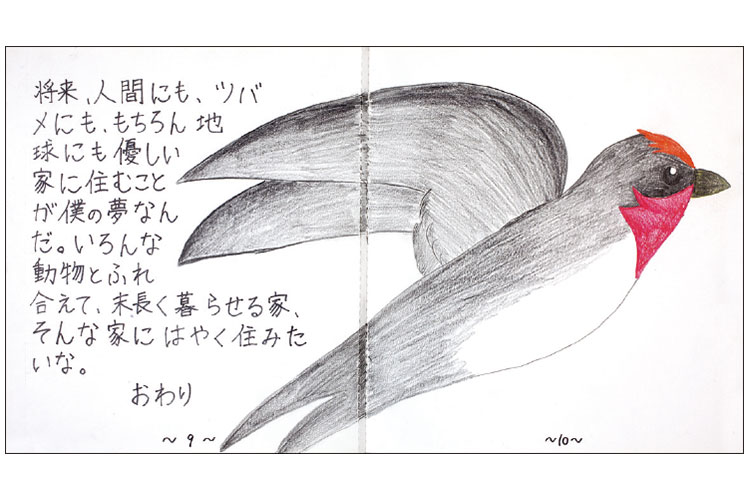 将来、人間にも、ツバ
メにも、もちろん地
球にも優しい
家に住むこと
が僕の夢なん
だ。いろんな
動物とふれ
合えて、末長く暮らせる家、
そんな家にはやく住みた
いな。
おわり
～9～
～10～